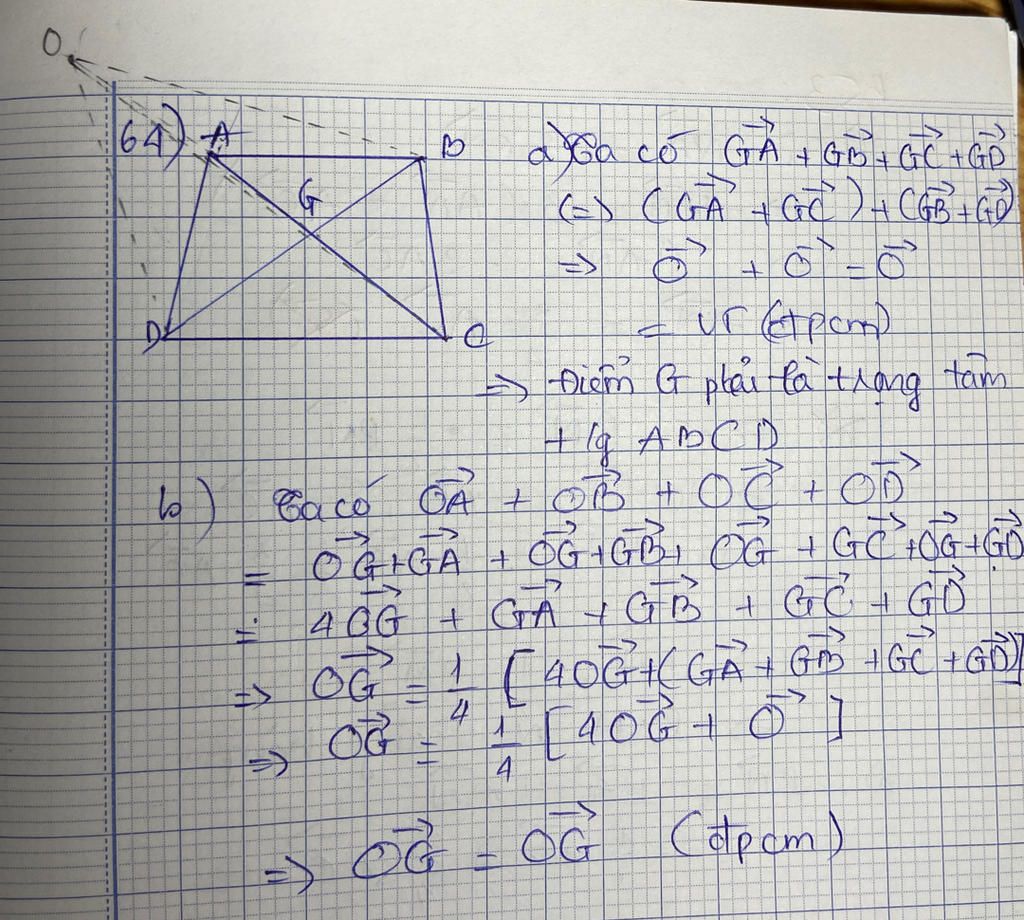 O
64) A B
G
D C
a) Ta có GA⃗ + GB⃗ + GC⃗ + GD⃗
(=) (GA⃗ + GC⃗) + (GB⃗ + GD⃗)
=> O⃗ + O⃗ = O⃗
= VT (đpcm)
=> Điểm G phải là trọng tâm
tứ g ABCD
b) Ta có OA⃗ + OB⃗ + OC⃗ + OD⃗
= OG⃗ + GA⃗ + OG⃗ + GB⃗ + OG⃗ + GC⃗ + OG⃗ + GD⃗
= 4OG⃗ + GA⃗ + GB⃗ + GC⃗ + GD⃗
=> OG⃗ = 1/4 [4OG⃗ + (GA⃗ + GB⃗ + GC⃗ + GD⃗)]
=> OG⃗ = 1/4 [4OG⃗ + O⃗ ]
=> OG⃗ = OG⃗ (đpcm)